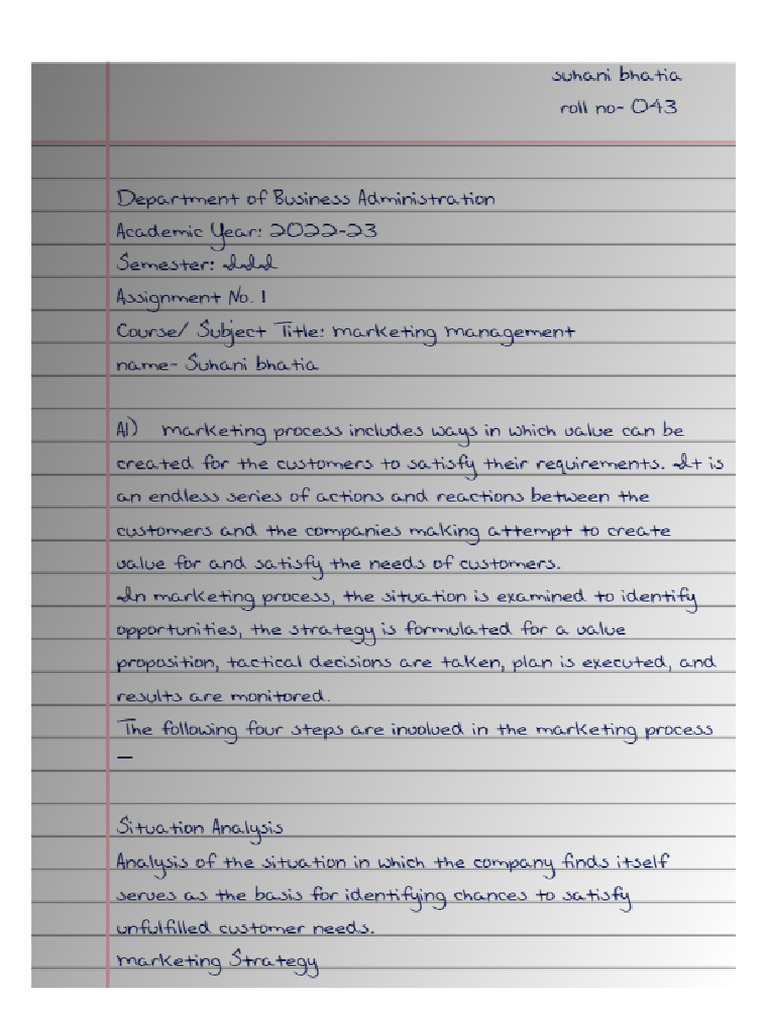 suhani bhatia
roll no- 043
Department of Business Administration
Academic Year: 2022-23
Semester: III
Assignment No. 1
Course/ Subject Title: marketing management
name- Suhani bhatia
A1) marketing process includes ways in which value can be
created for the customers to satisfy their requirements. It is
an endless series of actions and reactions between the
customers and the companies making attempt to create
value for and satisfy the needs of customers.
In marketing process, the situation is examined to identify
opportunities, the strategy is formulated for a value
proposition, tactical decisions are taken, plan is executed, and
results are monitored.
The following four steps are involved in the marketing process
—
Situation Analysis
Analysis of the situation in which the company finds itself
serves as the basis for identifying chances to satisfy
unfulfilled customer needs.
marketing Strategy